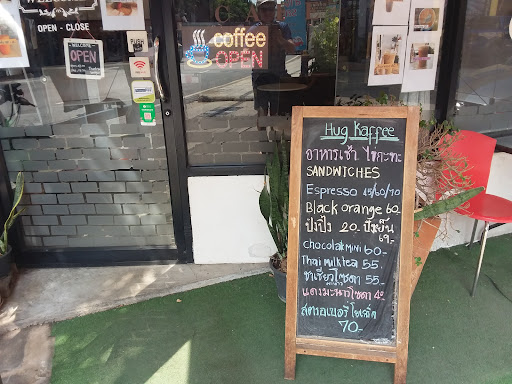 OPEN - CLOSE
WELCOME
OPEN
PUSH
coffee
OPEN
Hug Kaffee
อาหารเช้า ไข่กะทะ
SANDWICHES
Espresso 45/60/70
Black orange 60
ปังปิ้ง 20.- ปังเย็น
69.-
chocolate mint 60.-
Thai milk tea 55.-
ชาเขียวไซดา 55.-
แดงมะนาวโซดา 40
สตรอเบอรี่โยเกิต
70.-